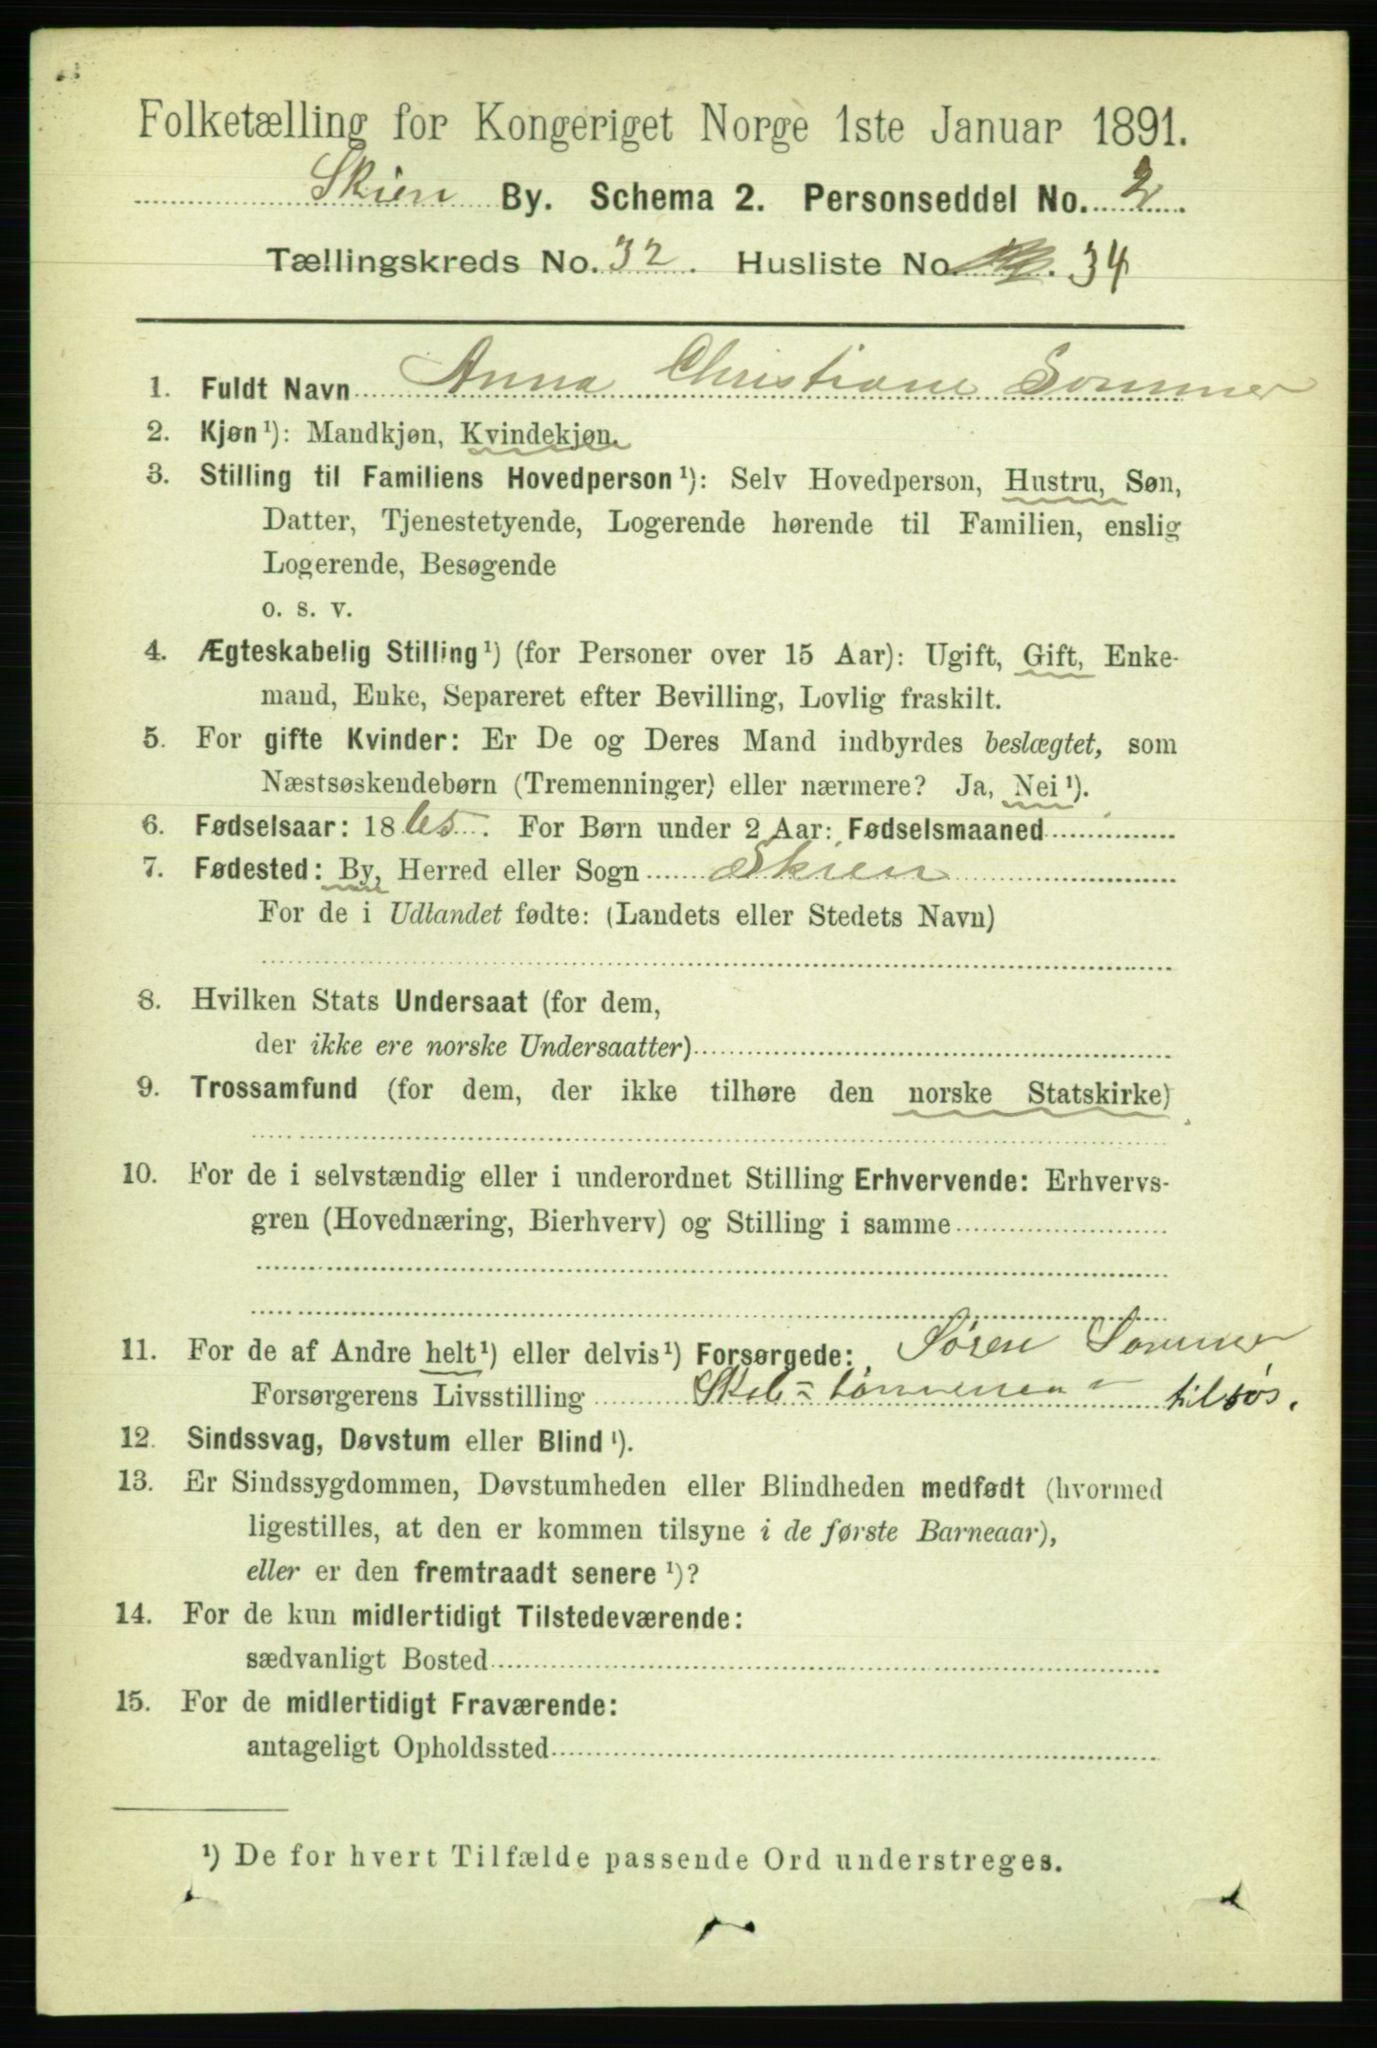 Folketælling for Kongeriget Norge 1ste Januar 1891.
Skien By. Schema 2. Personseddel No. 2.
Tællingskreds No. 32. Husliste No. 34
1. Fuldt Navn Anna Christiane Sommer
2. Kjøn¹): Mandkjøn, Kvindekjøn.
3. Stilling til Familiens Hovedperson¹): Selv Hovedperson, Hustru, Søn,
Datter, Tjenestetyende, Logerende hørende til Familien, enslig
Logerende, Besøgende
o. s. v.
4. Ægteskabelig Stilling¹) (for Personer over 15 Aar): Ugift, Gift, Enke-
mand, Enke, Separeret efter Bevilling, Lovlig fraskilt.
5. For gifte Kvinder: Er De og Deres Mand indbyrdes beslægtet, som
Næstsøskendebørn (Tremenninger) eller nærmere? Ja, Nei¹).
6. Fødselsaar: 1865. For Børn under 2 Aar: Fødselsmaaned
7. Fødested: By, Herred eller Sogn Skien
For de i Udlandet fødte: (Landets eller Stedets Navn)
8. Hvilken Stats Undersaat (for dem,
der ikke ere norske Undersaatter)
9. Trossamfund (for dem, der ikke tilhøre den norske Statskirke)
10. For de i selvstændig eller i underordnet Stilling Erhvervende: Erhvervs-
gren (Hovednæring, Bierhverv) og Stilling i samme
11. For de af Andre helt¹) eller delvis¹) Forsørgede: Søren Sommer
Forsørgerens Livsstilling tilsøs.
12. Sindssvag, Døvstum eller Blind¹).
13. Er Sindssygdommen, Døvstumheden eller Blindheden medfødt (hvormed
ligestilles, at den er kommen tilsyne i de første Barneaar),
eller er den fremtraadt senere¹)?
14. For de kun midlertidigt Tilstedeværende:
sædvanligt Bosted
15. For de midlertidigt Fraværende:
antageligt Opholdssted
¹) De for hvert Tilfælde passende Ord understreges.